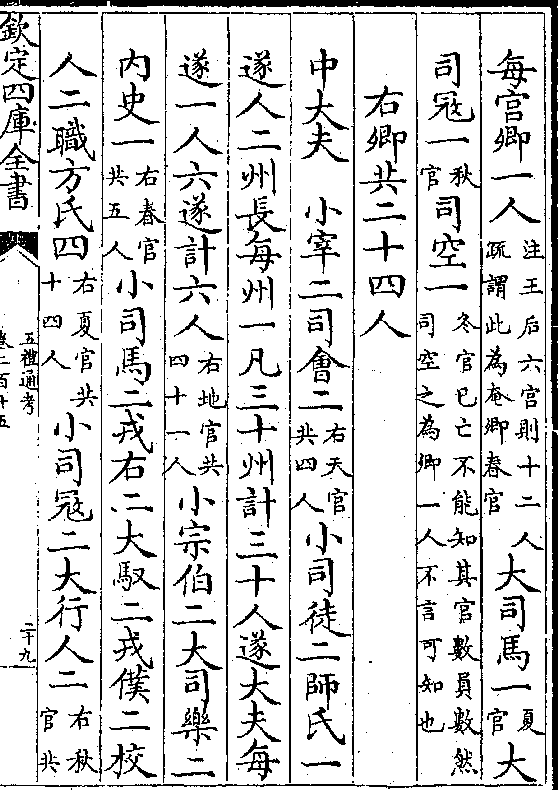 每宫卿一人注王后六宫則十二人疏謂此為奄卿春官大司馬一夏官大
司冦一秋官司空一冬官已亡不能知其官數員數然司空之為卿一人不言可知也
右卿共二十四人
中大夫　小宰二司會二右天官共四人小司徒二師氏一
遂人二州長每州一凡三十州計三十人遂大夫每
遂一人六遂計六人右地官共四十一人小宗伯二大司樂二
内史一右春官共五人小司馬二戎右二大馭二戎僕二校
人二職方氏四右夏官共十四人小司冦二大行人二右秋官共
欽定四庫全書
五禮通考
卷二百十五
二十九